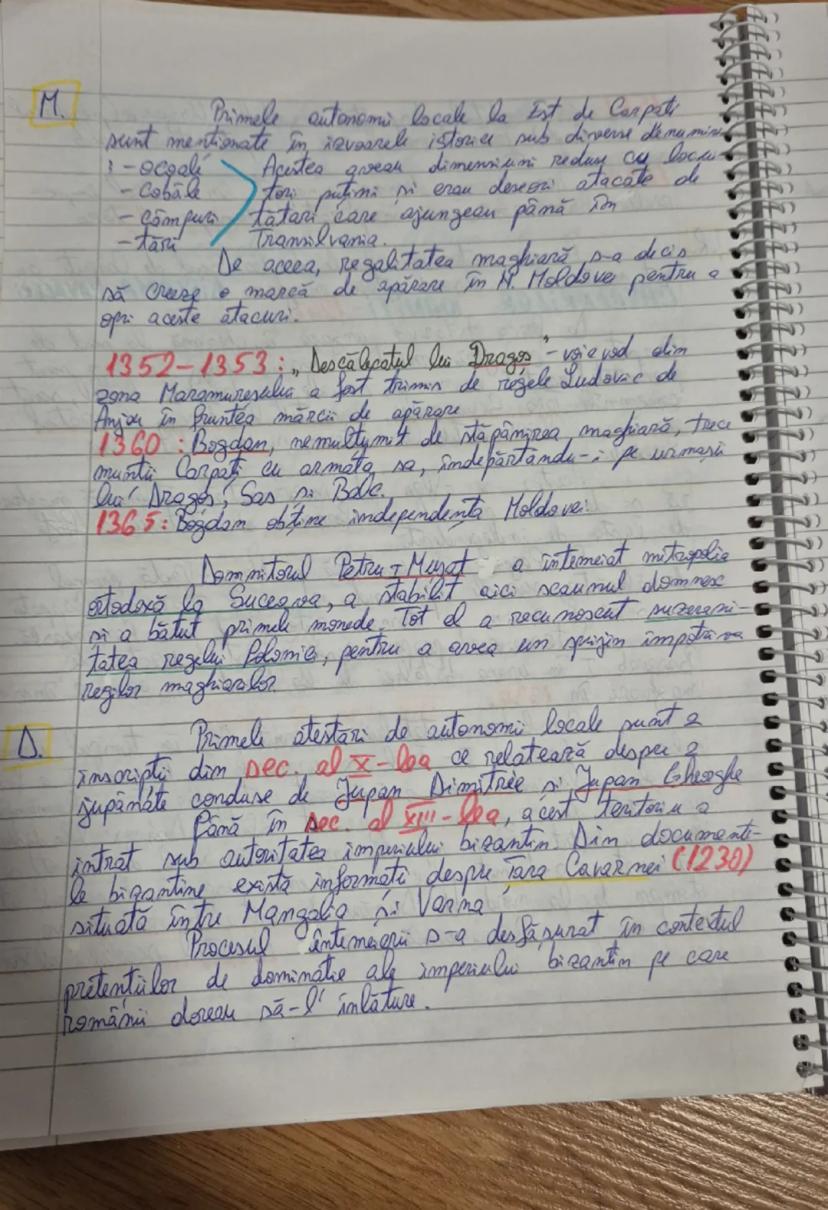 M.
Primele autonomii locale la Est de Carpați
sunt menționate în izvoarele istorice sub diverse denumiri
: - ocoale Acestea aveau dimensiuni reduse cu locui-
- cobâle tori puțini și erau deseori atacate de
- câmpuri tătari care ajungeau până în
- țări Transilvania.
De aceea, regalitatea maghiară s-a decis
să creeze o marcă de apărare în N. Moldovei pentru a
opri aceste atacuri.
1352-1353: „Descălecatul lui Dragoș" - voievod din
zona Maramureșului a fost trimis de regele Ludovic de
Anjou în fruntea mărcii de apărare
1360: Bogdan, nemulțumit de stăpânirea maghiară, trece
munții Carpați cu armata sa, îndepărtându-i pe urmașii
lui Dragoș, Sas și Balc.
1365: Bogdan obține independența Moldovei.
Domnitorul Petru I Mușat - a întemeiat mitropolia
ortodoxă la Suceava, a stabilit aici scaunul domnesc
și a bătut primele monede. Tot el a recunoscut suzerani-
tatea regelui Poloniei, pentru a avea un sprijin împotriva
regilor maghiarilor.
D.
Primele atestări de autonomii locale sunt 2
inscripții din sec. al X-lea ce relatează despre 2
jupânate conduse de Jupan Dimitrie și Jupan Gheorghe
Până în sec. al XIII-lea, acest teritoriu a
intrat sub autoritatea imperiului bizantin. Din documente-
le bizantine există informații despre Țara Cavarnei (1230)
situată între Mangalia și Varna
Procesul întemeierii s-a desfășurat în contextul
pretențiilor de dominație ale imperiului bizantin pe care
românii doreau să-l înlăture.